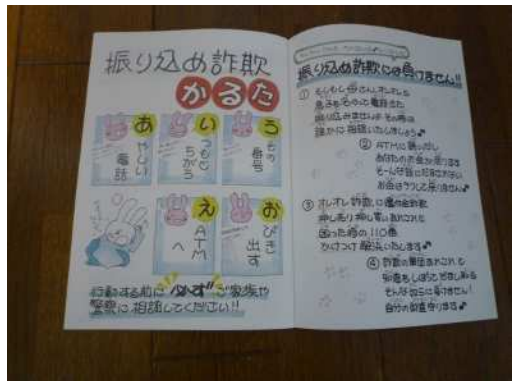 振り込め詐欺
かるた
あやしい
電話
いつもと
ちがう
うその
番号
えATM
へ
おびき
出す
行動する前に"必ず"ご家族や
警察に相談してください!!
振り込め詐欺には負けません!!
① もしもし母さんオレオレと
息子を名のって電話きた
振り込みませんよその時は
誰かに相談いたしましょう♪
② ATMに誘いだし
あなたのお金が戻ります
そんな話にだまされない
お金はラクして戻りません♪
③ オレオレ詐欺に
押し売り押し買いあれこれ
困った時の110番
かけつけ解決いたします♪
④ 詐欺の軍団あれこれと
知恵をしぼってだまし
そんな奴らに負けません!
自分の財産守ります♪